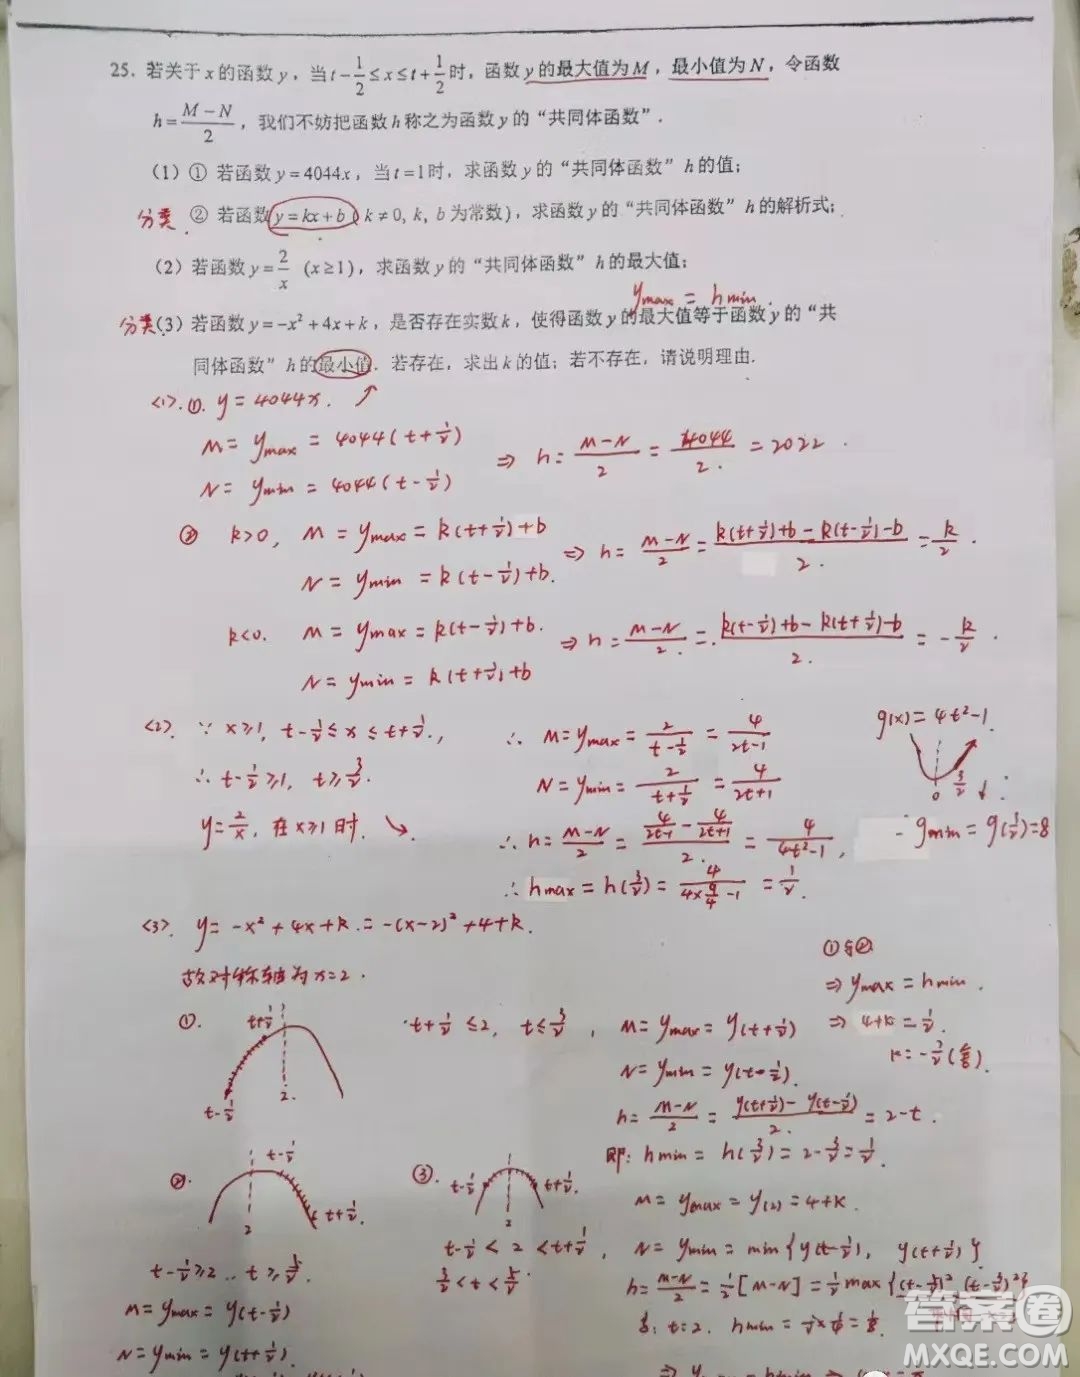 25. 若关于x的函数y，当t-1/2≤x≤t+1/2时，函数y的最大值为M，最小值为N，令函数
h=(M-N)/2，我们不妨把函数h称之为函数y的“共同体函数”.
(1) ① 若函数y=4044x，当t=1时，求函数y的“共同体函数”h的值；
分类 ② 若函数y=kx+b（k≠0, k, b为常数），求函数y的“共同体函数”h的解析式；
(2) 若函数y=2/x (x≥1)，求函数y的“共同体函数”h的最大值；
ymax = hmin.
分类 (3) 若函数y=-x²+4x+k，是否存在实数k，使得函数y的最大值等于函数y的“共
同体函数”h的最小值. 若存在，求出k的值；若不存在，请说明理由.
<1>. ①. y=4044x. ↗
M = ymax = 4044(t+1/2)
N = ymin = 4044(t-1/2)
⇒ h = (M-N)/2 = 4044/2 = 2022.
② k>0, M = ymax = k(t+1/2)+b
N = ymin = k(t-1/2)+b.
⇒ h = (M-N)/2 = (k(t+1/2)+b-k(t-1/2)-b)/2 = k/2.
k<0. M = ymax = k(t-1/2)+b.
N = ymin = k(t+1/2)+b
⇒ h = (M-N)/2 = (k(t-1/2)+b-k(t+1/2)-b)/2 = -k/2.
<2>. ∵ x≥1, t-1/2≤x≤t+1/2,
∴ t-1/2≥1, t≥3/2.
y=2/x, 在x≥1时. ↘
∴ M = ymax = 2/(t-1/2) = 4/(2t-1)
N = ymin = 2/(t+1/2) = 4/(2t+1)
∴ h = (M-N)/2 = (4/(2t-1) - 4/(2t+1))/2 = 4/(4t²-1),
∴ hmax = h(3/2) = 4/(4×9/4-1) = 1/2.
g(x) = 4t²-1.
0 3/2
gmin = g(3/2) = 8
<3>. y = -x²+4x+k = -(x-2)²+4+k.
故对称轴为x=2.
①.
t+1/2
t-1/2
2.
t+1/2≤2, t≤3/2, M = ymax = y(t+1/2)
N = ymin = y(t-1/2).
h = (M-N)/2 = (y(t+1/2)-y(t-1/2))/2 = 2-t.
即: hmin = h(3/2) = 2-3/2 = 1/2.
①与②
⇒ ymax = hmin.
⇒ 4+k = 1/2.
k = -7/2 (舍).
②.
t-1/2
2
t+1/2.
t-1/2≥2.. t≥5/2.
M = ymax = y(t-1/2)
N = ymin = y(t+1/2).
③.
t-1/2
t+1/2.
2
t-1/2 < 2 < t+1/2,
3/2 < t < 5/2.
M = ymax = y(2) = 4+k.
N = ymin = min{y(t-1/2), y(t+1/2)}
h = (M-N)/2 = 1/2[M-N] = 1/2 max{
t=2. hmin = 1/2×1/4 = 1/8.
答案圈
MXQE.COM